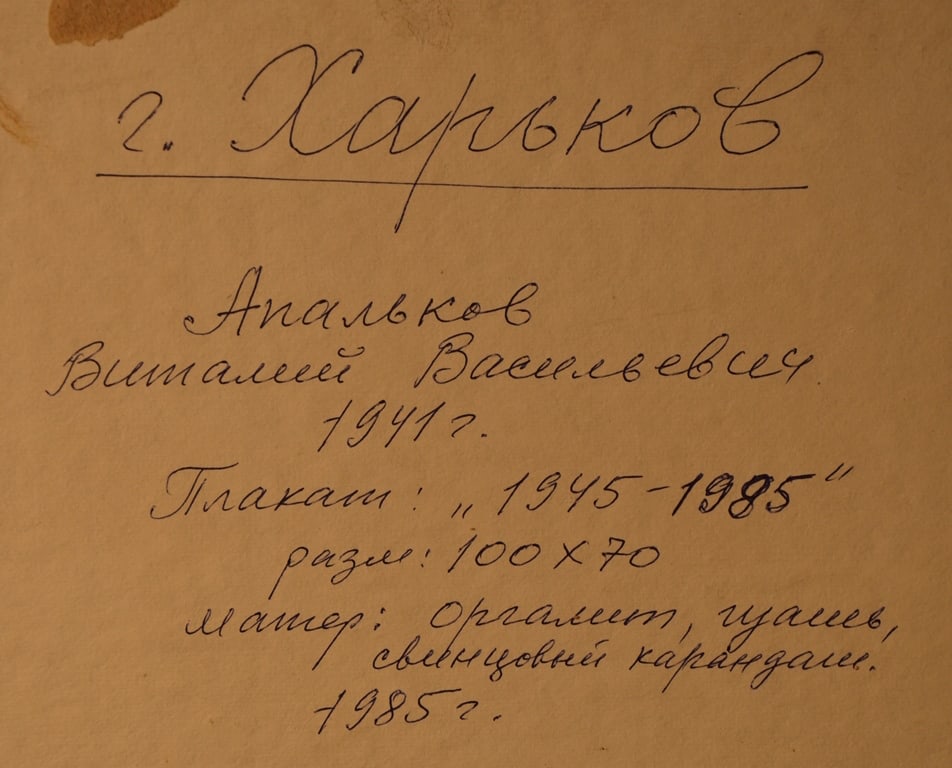 г. Харьков
Апальков
Виталий Васильевич
1941 г.
Плакат: „1945-1985"
разм: 100 x 70
матер: оргалит, гуашь,
свинцовый карандаш.
1985 г.